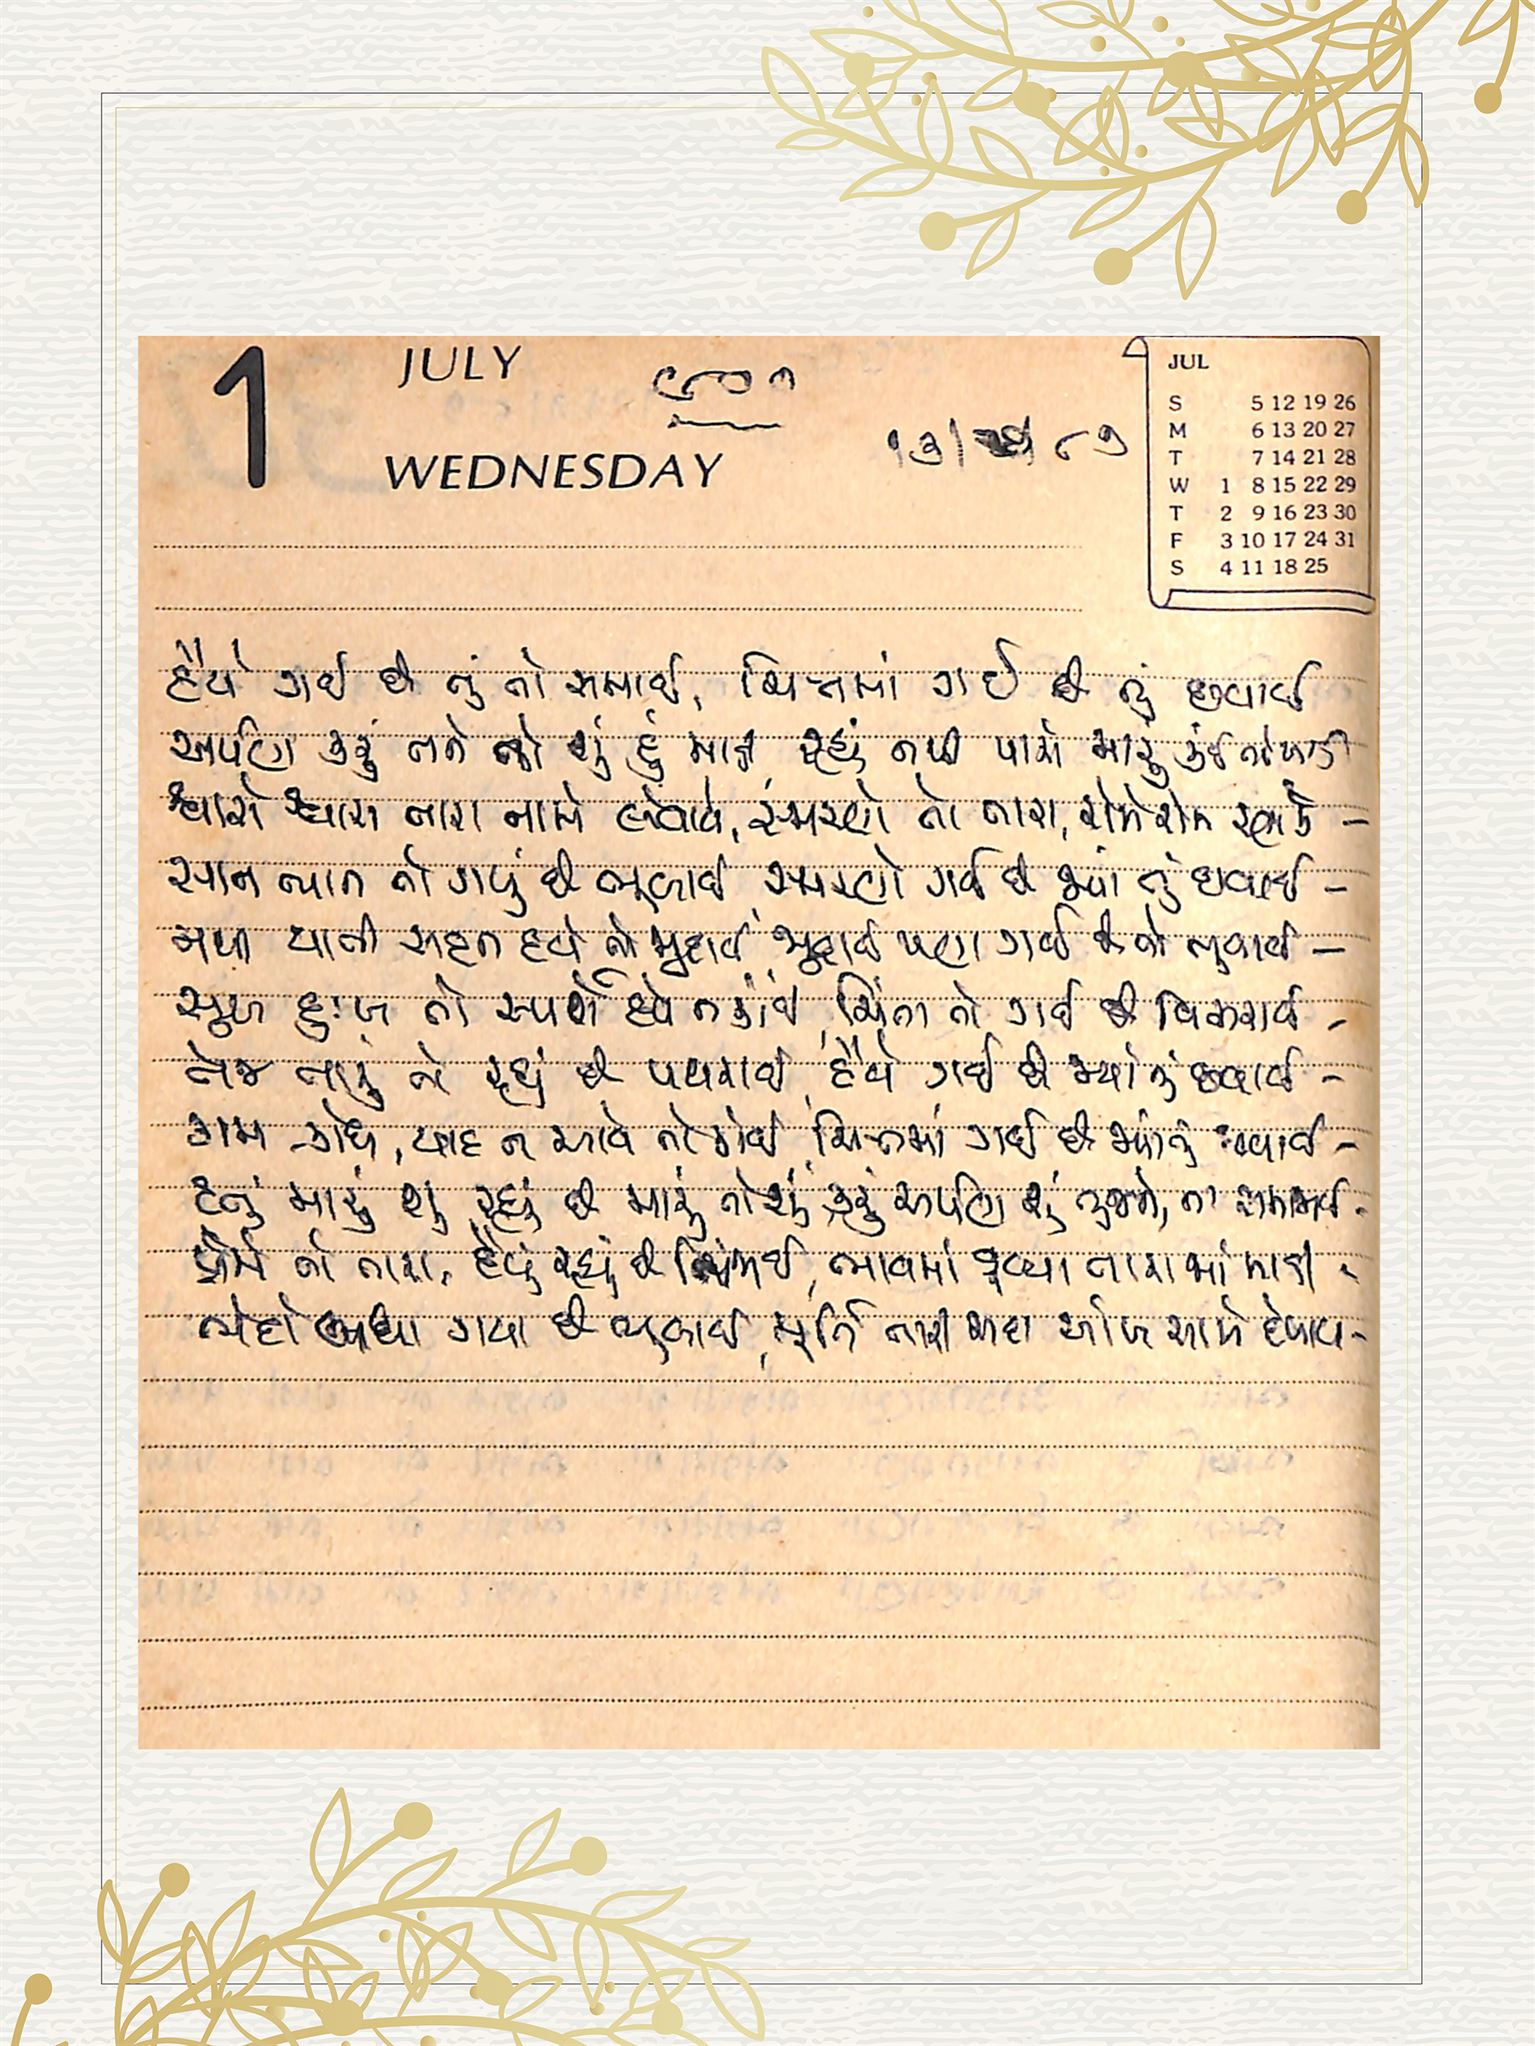 1 JULY
WEDNESDAY
JUL
S 5 12 19 26
M 6 13 20 27
T 7 14 21 28
W 1 8 15 22 29
T 2 9 16 23 30
F 3 10 17 24 31
S 4 11 18 25
હૈયે ગઈ છે તું તો સમાઈ, ચિત્તમાં ગઈ છે તું છવાઈ
અર્પણ કરું તને તો શું હું માત, રહ્યું નથી પાસે મારું કંઈ તો માડી
શ્વાસે શ્વાસ તારા નામે લેવાયે, સ્મરણો તો તારા, રોમેરોમ
સાન ભાન તો ગયું છે ભૂલાઈ સ્મરણે ગઈ છે જ્યાં તું છવાઈ -
માયા તારી સહન હવે તો ભુલાઈ પણ ગઈ છે તો ભુલાઈ -
સુખ દુઃખ તો સ્પર્શે હવે ન કાંઈ, ચિંતા તો ગઈ છે વિસરાઈ -
તેજ તારું તો રહ્યું છે પથરાઈ, હૈયે ગઈ છે જ્યાં તું છવાઈ -
કામ ક્રોધ, યાદ ન આવે તો કોઈ, ચિત્તમાં ગઈ છે જ્યાં તું છવાઈ -
મારું શું રહ્યું છે મારું તો શું, કરું અર્પણ શું તુજને, ના સમજાઈ -
પ્રેમે તો તારા, હૈયું રહ્યું છે ભીંજાઈ, ભાવમાં ડૂબ્યા તારામાં માડી -
ભેદો બધા ગયા છે ભુલાઈ, મૂર્તિ તારી સદા આંખ સામે દેખાય -